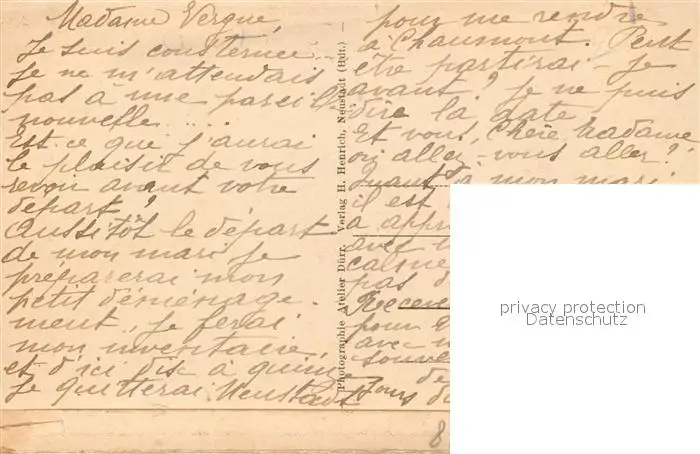 Madame Vergne
Je suis consternée...
Je ne m'attendais
pas à une pareille
nouvelle....
Est ce que j'aurai
le plaisir de vous
revoir avant votre
départ?
Aussitôt le départ
de mon mari je
préparerai mon
petit déménage-
ment, je ferai
mon inventaire,
et d'ici dix à quinze
Je quitterai Neustadt
Photographie Atelier Dürr. Verlag H. Henrich, Neustadt (Hdt.)
pour me rendre
à Chaumont. Peut
être partirai-je
avant? je ne puis
dire la date
Et vous, Chère Madame
où allez-vous aller?
Quant à mon mari
il est
a appr
avec
calme
pas d
Recev
pour
avec
souve
de
jours
8
privacy protection
Datenschutz